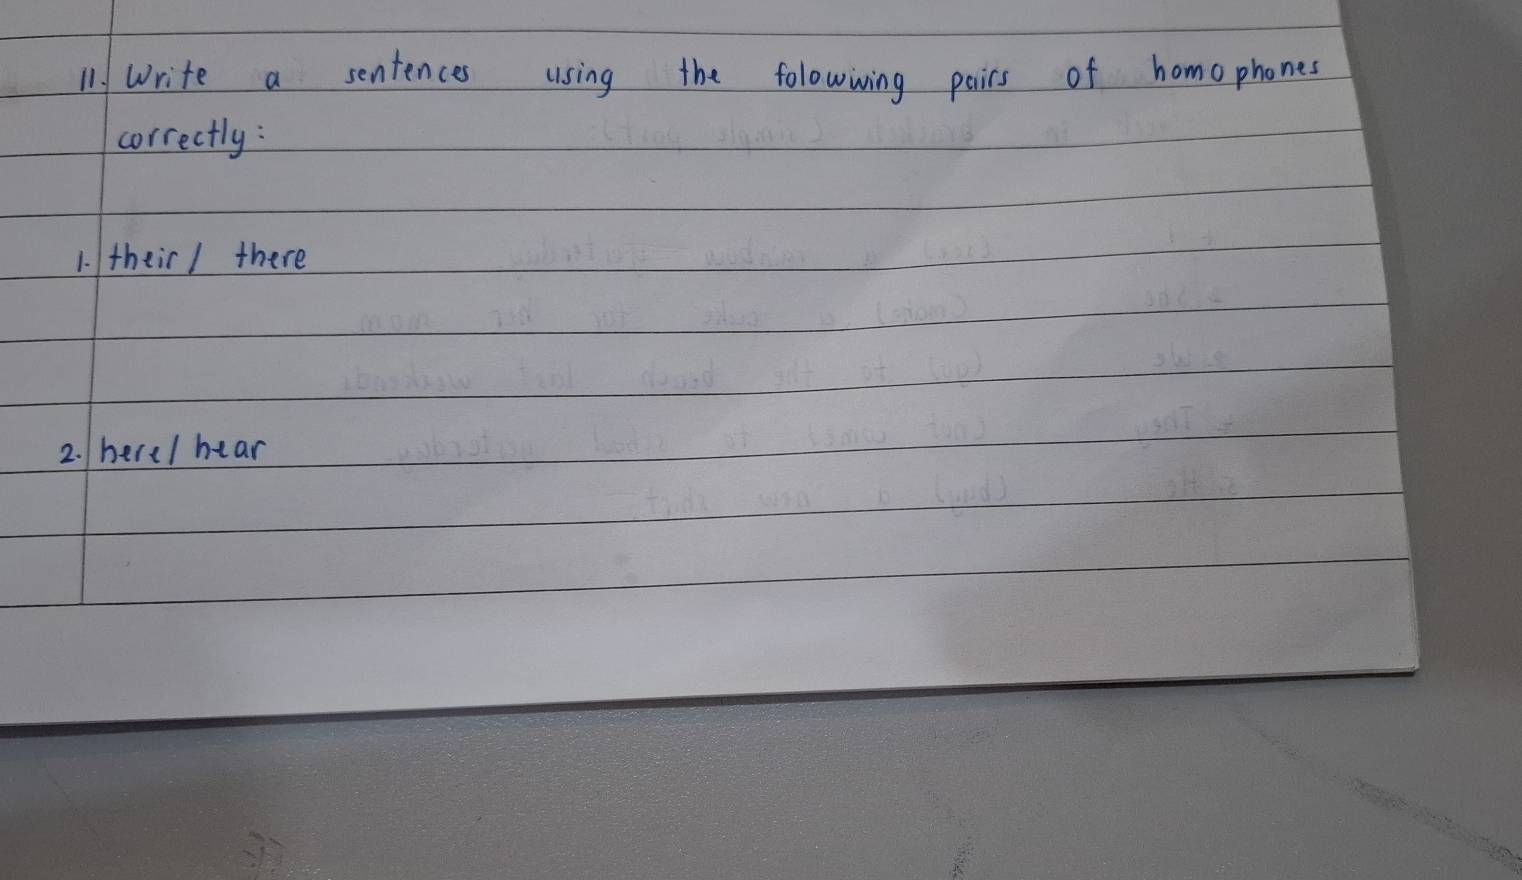 11. Write a sentences using the folowiwing pairs of homophones
correctly:
1. their / there
2. here / hear